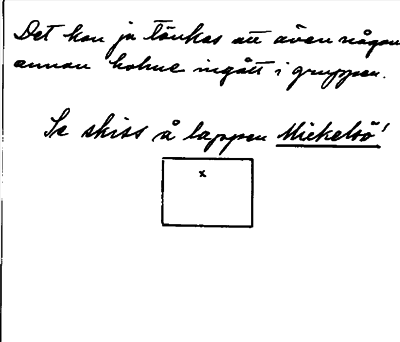 Det kan ju tänkas att även någon
annan holme ingått i gruppen.
Se skiss å lappen Mickelsö!
x